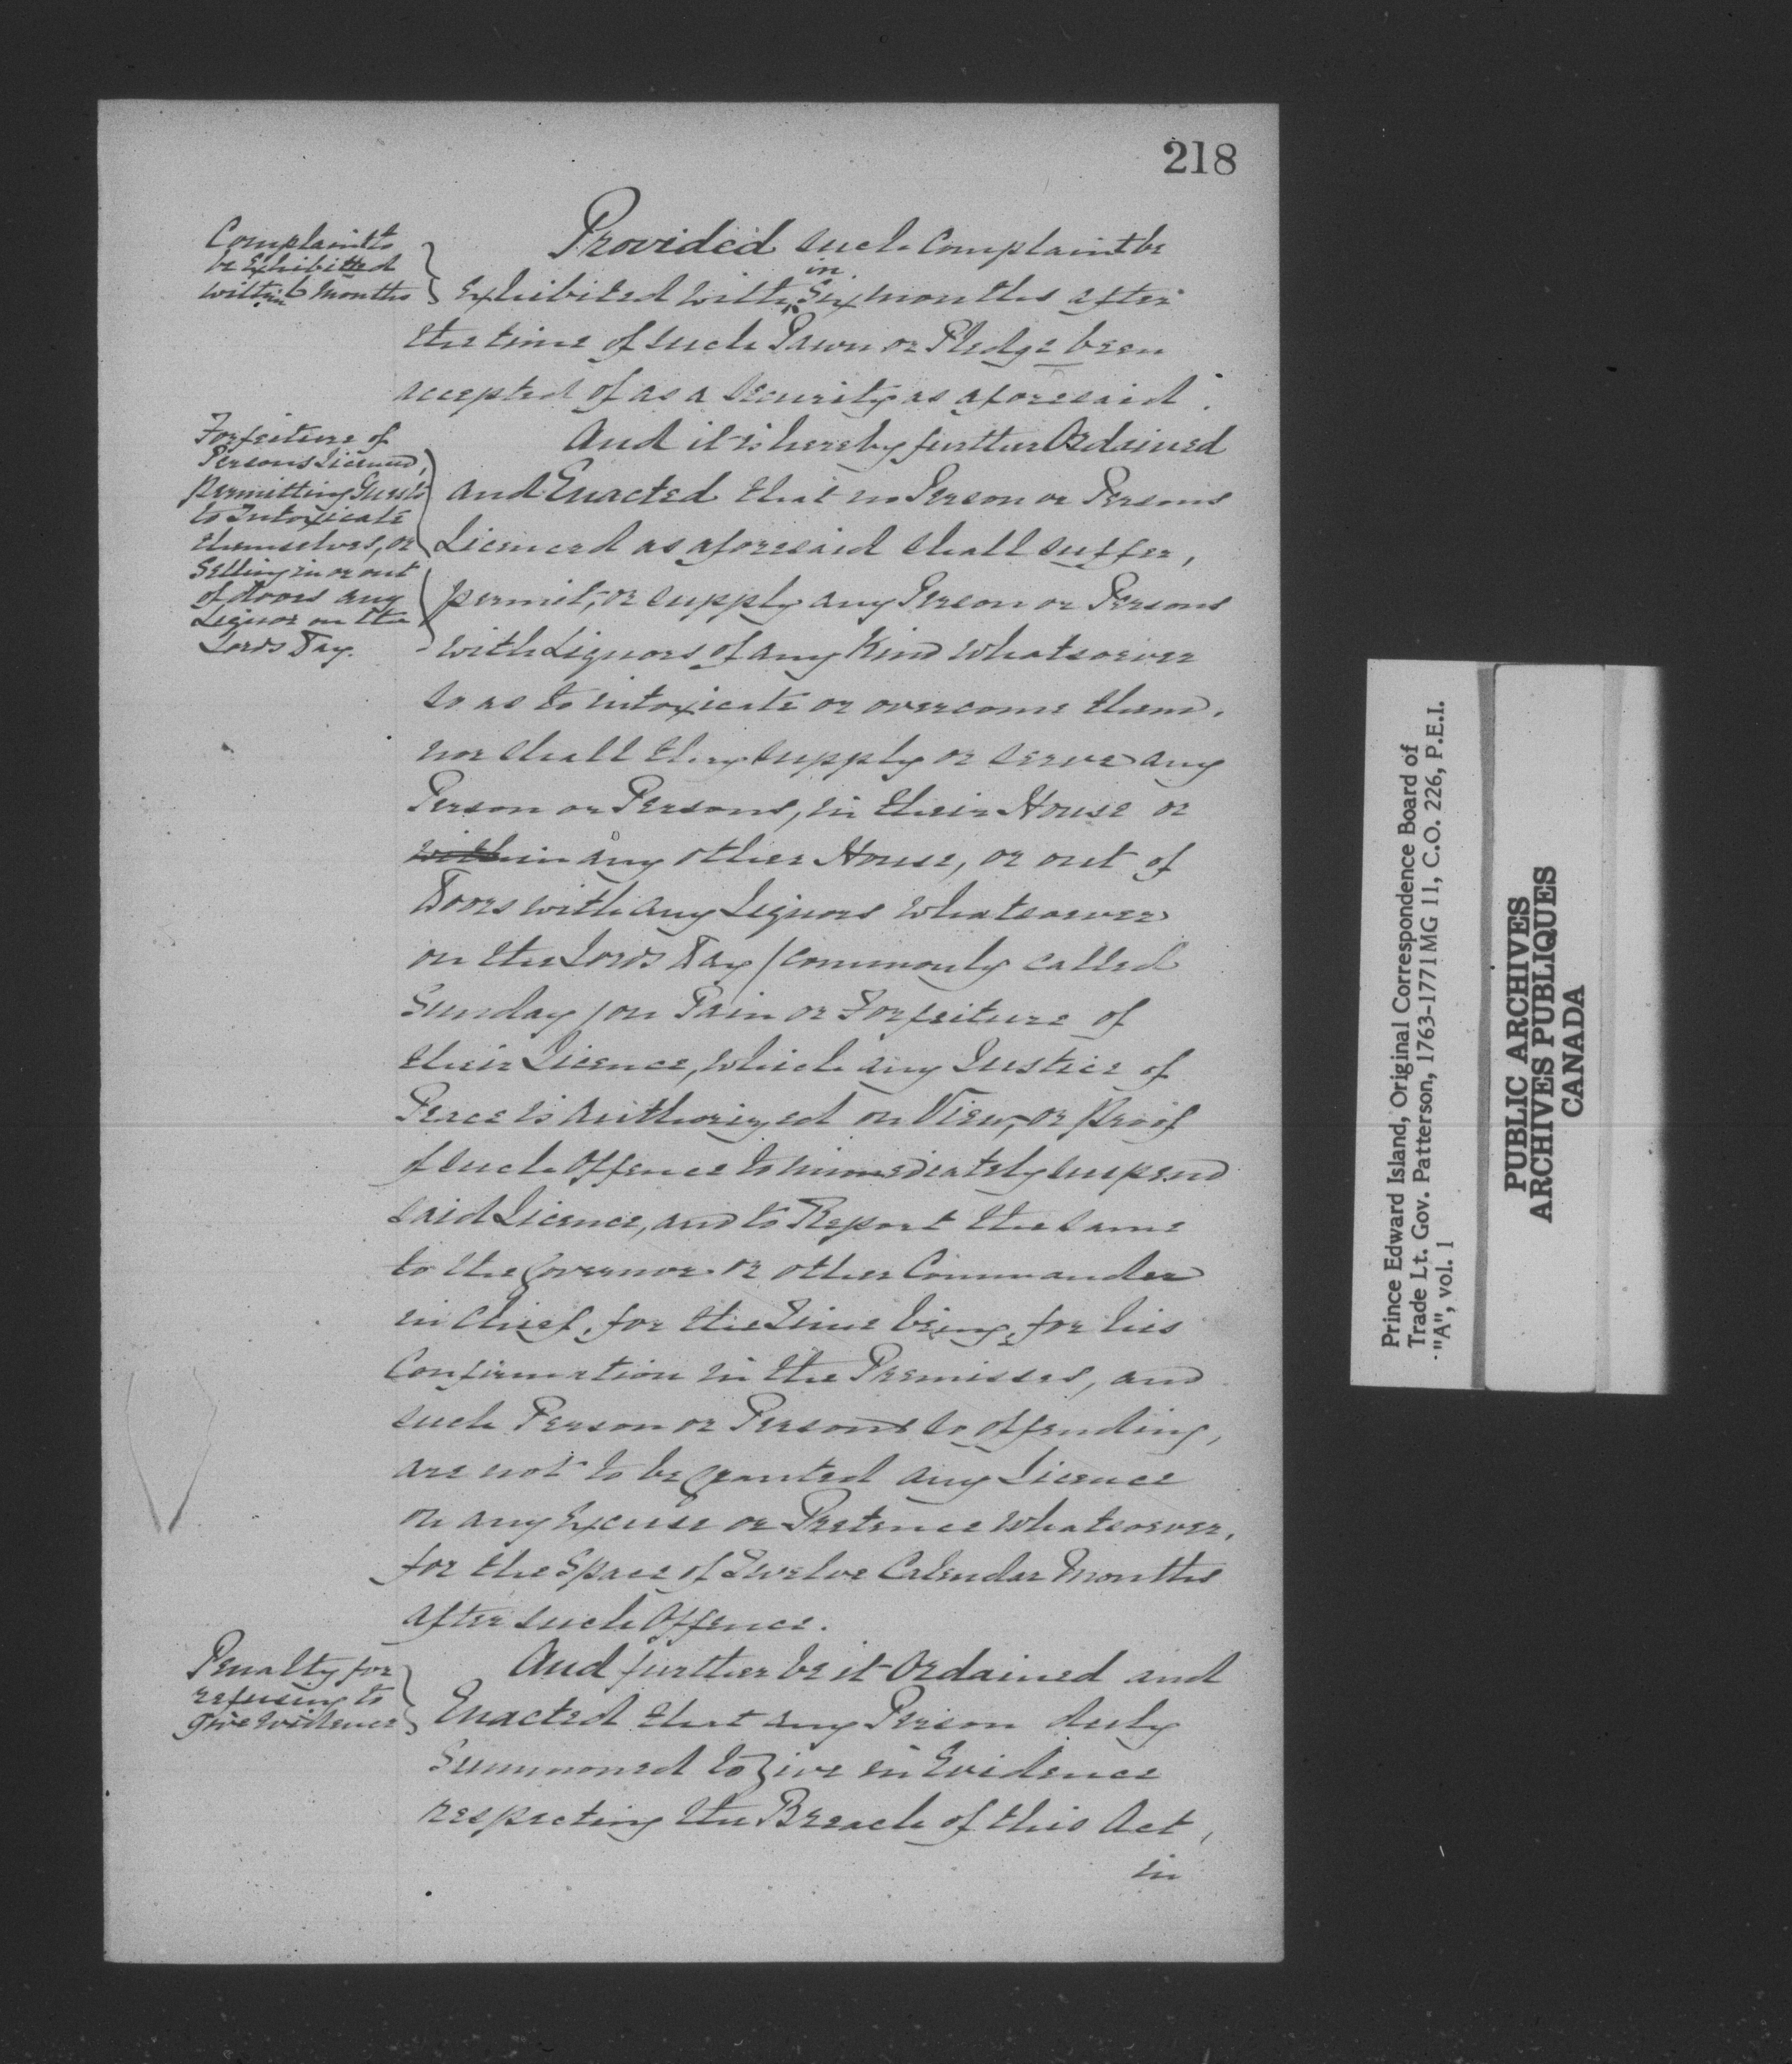 218
Complaint to
be Exhibitted
within 6 Months
Provided such Complaint be
Exhibited within Six months after
the time of such Pawn or Pledge been
accepted of as a Security as aforesaid.
Forfeiture of
Persons Licenced,
permitting Guests
to Intoxicate
themselves, or
Selling in or out
of doors any
Liquor on the
Lords Day.
And it is hereby further Ordained
and Enacted that no Person or Persons
Licenced as aforesaid shall suffer,
permit, or supply any Person or Persons
with Liquors of any Kind whatsoever
so as to intoxicate or overcome them.
nor shall they supply or serve any
Person or Persons, in their House or
within any other House, or out of
Doors with any Liquors whatsoever
on the Lords Day / commonly called
Sunday / on Pain or Forfeiture of
their Licence, which any Justice of
Peace is authorized on View, or proof
of such Offence to immediately suspend
said Licence, and to Report the same
to the Governor or other Commander
in Chief, for the Time being, for his
Confirmation in the Premisses, and
such Person or Persons so offending,
are not to be granted any Licence
on any Excuse or Pretence whatsoever,
for the Space of Twelve Calendar Months
after such Offence.
Penalty for
refusing to
give Evidence
And further be it Ordained and
Enacted that any Person duly
Summoned to give in Evidence
respecting the Breach of this Act,
in
Prince Edward Island, Original Correspondence Board of
Trade Lt. Gov. Patterson, 1763-1771 MG 11, C.O. 226, P.E.I.
"A", vol. 1
PUBLIC ARCHIVES
ARCHIVES PUBLIQUES
CANADA